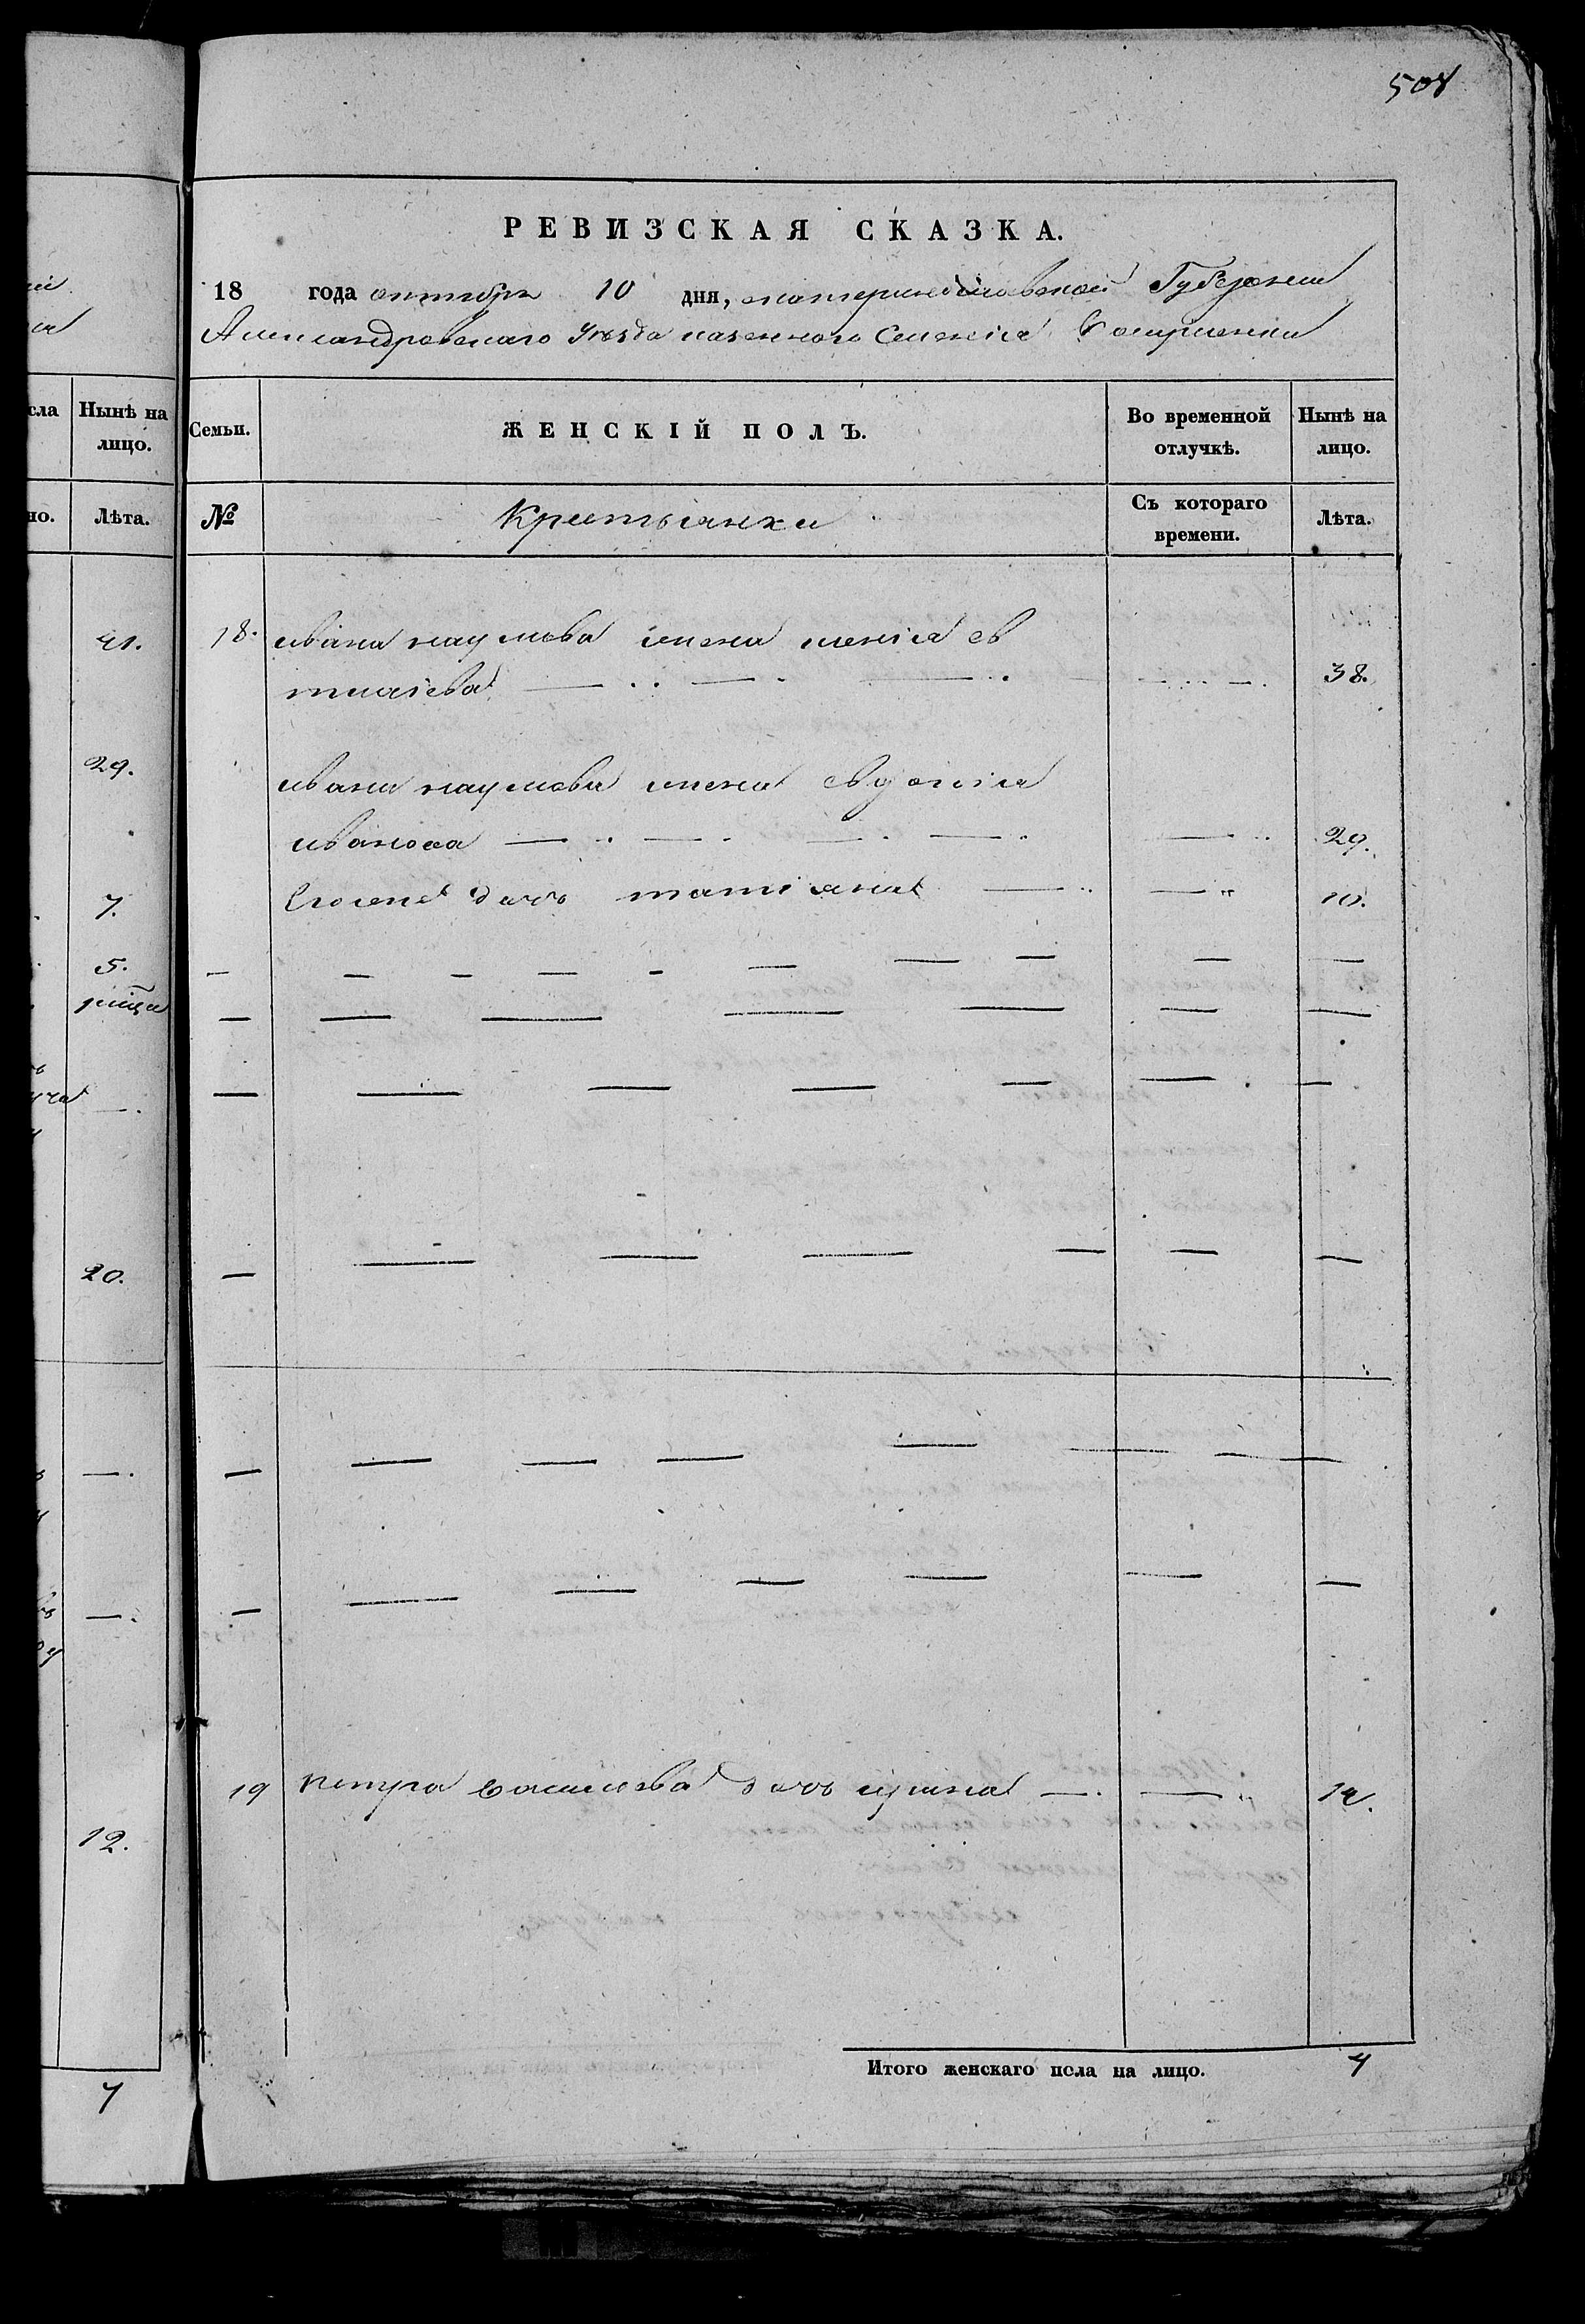 508
РЕВИЗСКАЯ СКАЗКА.
18 года октября 10 дня, екатеринославской Губернии
Александровского уезда казенного селенія
сла Нынѣ на лицо. Семьи. ЖЕНСКІЙ ПОЛЪ. Во временной отлучкѣ. Нынѣ на лицо.
но. Лѣта. № Крестьянки Съ котораго времени. Лѣта.
41. 18. ивана наумова жена ксенія ев
38.
29. ивана наумова жена евдокія
иванова 29.
7. дочь татіана 10.
5.
20.
19 петра василева дочь 12.
12.
Итого женскаго пола на лицо. 4
7